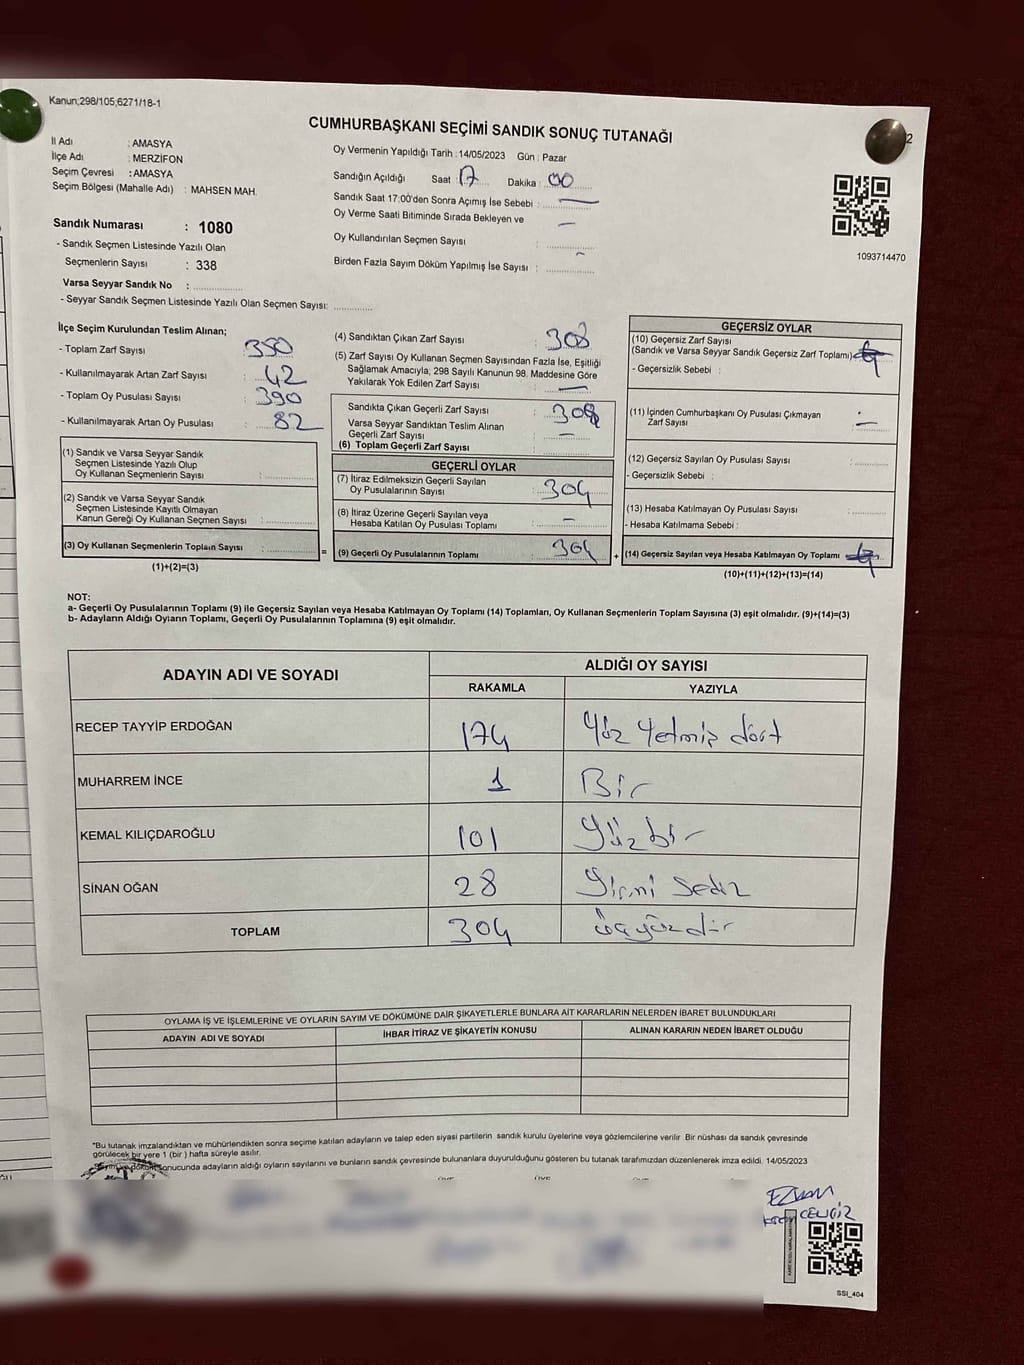 Kanun;298/105;6271/18-1
CUMHURBAŞKANI SEÇİMİ SANDIK SONUÇ TUTANAĞI
İl Adı : AMASYA
İlçe Adı : MERZİFON
Seçim Çevresi : AMASYA
Seçim Bölgesi (Mahalle Adı) : MAHSEN MAH.
Sandık Numarası : 1080
- Sandık Seçmen Listesinde Yazılı Olan
Seçmenlerin Sayısı : 338
Varsa Seyyar Sandık No :
- Seyyar Sandık Seçmen Listesinde Yazılı Olan Seçmen Sayısı:
Oy Vermenin Yapıldığı Tarih : 14/05/2023 Gün : Pazar
Sandığın Açıldığı Saat : 17 Dakika : 00
Sandık Saat 17:00'den Sonra Açımış İse Sebebi :
Oy Verme Saati Bitiminde Sırada Bekleyen ve
Oy Kullandırılan Seçmen Sayısı :
Birden Fazla Sayım Döküm Yapılmış İse Sayısı :
2
1093714470
İlçe Seçim Kurulundan Teslim Alınan;
- Toplam Zarf Sayısı : 350
- Kullanılmayarak Artan Zarf Sayısı : 42
- Toplam Oy Pusulası Sayısı : 390
- Kullanılmayarak Artan Oy Pusulası : 82
(1) Sandık ve Varsa Seyyar Sandık
Seçmen Listesinde Yazılı Olup
Oy Kullanan Seçmenlerin Sayısı :
(2) Sandık ve Varsa Seyyar Sandık
Seçmen Listesinde Kayıtlı Olmayan
Kanun Gereği Oy Kullanan Seçmen Sayısı :
(3) Oy Kullanan Seçmenlerin Toplam Sayısı : =
(1)+(2)=(3)
(4) Sandıktan Çıkan Zarf Sayısı : 308
(5) Zarf Sayısı Oy Kullanan Seçmen Sayısından Fazla İse, Eşitliği
Sağlamak Amacıyla; 298 Sayılı Kanunun 98. Maddesine Göre
Yakılarak Yok Edilen Zarf Sayısı :
Sandıkta Çıkan Geçerli Zarf Sayısı : 308
Varsa Seyyar Sandıktan Teslim Alınan
Geçerli Zarf Sayısı :
(6) Toplam Geçerli Zarf Sayısı :
GEÇERLİ OYLAR
(7) İtiraz Edilmeksizin Geçerli Sayılan
Oy Pusulalarının Sayısı : 304
(8) İtiraz Üzerine Geçerli Sayılan veya
Hesaba Katılan Oy Pusulası Toplamı : –
(9) Geçerli Oy Pusulalarının Toplamı : 304 +
GEÇERSİZ OYLAR
(10) Geçersiz Zarf Sayısı
(Sandık ve Varsa Seyyar Sandık Geçersiz Zarf Toplamı): 4
- Geçersizlik Sebebi :
(11) İçinden Cumhurbaşkanı Oy Pusulası Çıkmayan
Zarf Sayısı : –
(12) Geçersiz Sayılan Oy Pusulası Sayısı :
- Geçersizlik Sebebi :
(13) Hesaba Katılmayan Oy Pusulası Sayısı :
- Hesaba Katılmama Sebebi :
(14) Geçersiz Sayılan veya Hesaba Katılmayan Oy Toplamı : 4
(10)+(11)+(12)+(13)=(14)
NOT:
a- Geçerli Oy Pusulalarının Toplamı (9) ile Geçersiz Sayılan veya Hesaba Katılmayan Oy Toplamı (14) Toplamları, Oy Kullanan Seçmenlerin Toplam Sayısına (3) eşit olmalıdır. (9)+(14)=(3)
b- Adayların Aldığı Oyların Toplamı, Geçerli Oy Pusulalarının Toplamına (9) eşit olmalıdır.
ADAYIN ADI VE SOYADI ALDIĞI OY SAYISI
RAKAMLA YAZIYLA
RECEP TAYYİP ERDOĞAN 174 Yüz Yetmiş dört
MUHARREM İNCE 1 Bir
KEMAL KILIÇDAROĞLU 101 Yüzbir
SİNAN OĞAN 28 Yirmi Sekiz
TOPLAM 304
OYLAMA İŞ VE İŞLEMLERİNE VE OYLARIN SAYIM VE DÖKÜMÜNE DAİR ŞİKAYETLERLE BUNLARA AİT KARARLARIN NELERDEN İBARET BULUNDUKLARI
ADAYIN ADI VE SOYADI İHBAR İTİRAZ VE ŞİKAYETİN KONUSU ALINAN KARARIN NEDEN İBARET OLDUĞU
*Bu tutanak imzalandıktan ve mühürlendikten sonra seçime katılan adayların ve talep eden siyasi partilerin sandık kurulu üyelerine veya gözlemcilerine verilir .Bir nüshası da sandık çevresinde
görülecek bir yere 1 (bir ) hafta süreyle asılır.
sonucunda adayların aldığı oyların sayılarını ve bunların sandık çevresinde bulunanlara duyurulduğunu gösteren bu tutanak tarafımızdan düzenlenerek imza edildi. 14/05/2023
CENGİZ
SSI_404